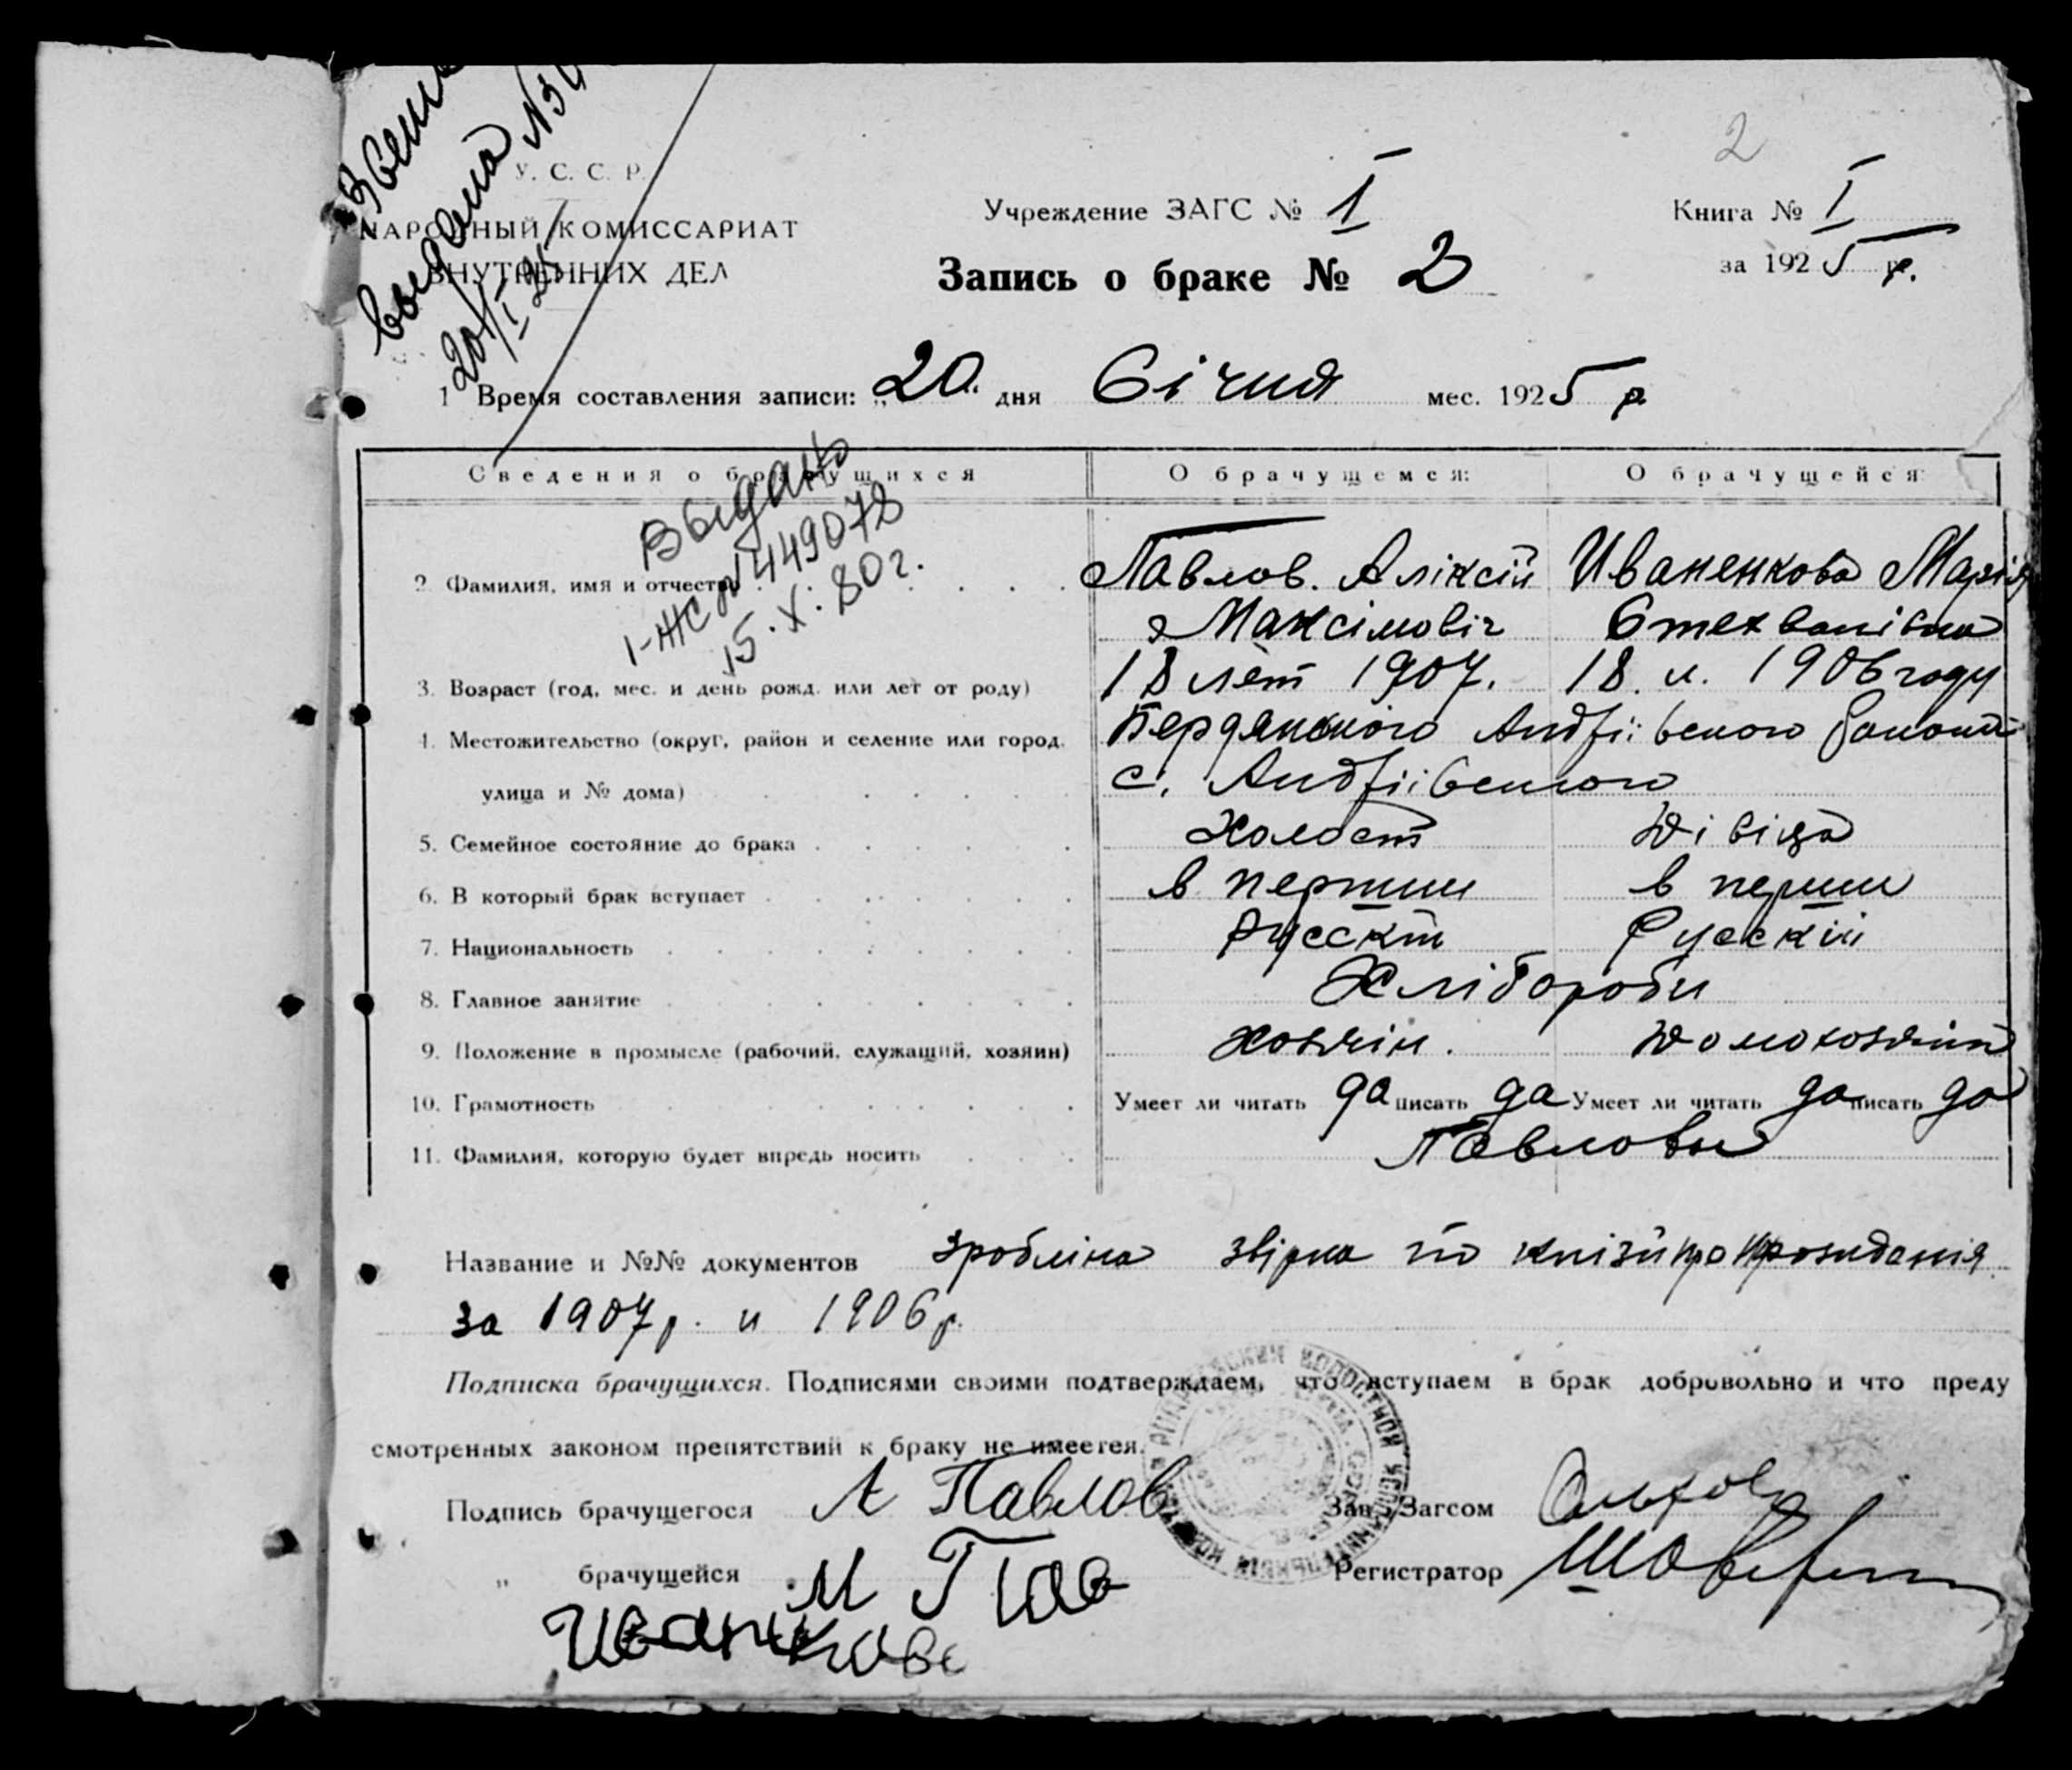 2
У. С. С. Р.
НАРОДНЫЙ КОМИССАРИАТ
ВНУТРЕННИХ ДЕЛ
выдана №
20/I 25
Учреждение ЗАГС № I
Запись о браке № 2
Книга № I
за 1925 р.
1 Время составления записи: „20“ дня Січня мес. 1925 р
Сведения о брачущихся О брачущемся: О брачущейся:
Выдано
I-ЖС № 449078
15.X.80г.
2 Фамилия, имя и отчество Павлов. Аліксій Иваненкова Марія
Максімовіч Стехванівна
3. Возраст (год, мес. и день рожд. или лет от роду) 18 лет 1907. 18. л. 1906 году
4. Местожительство (округ, район и селение или город, Бердянського Андріївського
улица и № дома) с. Андріївського
5. Семейное состояние до брака Холост Дівіца
6. В который брак вступает в перший в перший
7. Национальность Русскій Русскій
8. Главное занятие Хлібороби
9. Положение в промысле (рабочий, служащий, хозяин) хозяін.
10. Грамотность Умеет ли читать да писать да Умеет ли читать да писать да
11. Фамилия, которую будет впредь носить Павловы
Название и №№ документов зробліна звірка по книзі про
за 1907р. и 1906р.
Подписка брачущихся. Подписями своими подтверждаем, что вступаем в брак добровольно и что преду
смотренных законом препятствий к браку не имеется.
Подпись брачущегося А Павлов Зав. Загсом
„ брачущейся М Регистратор